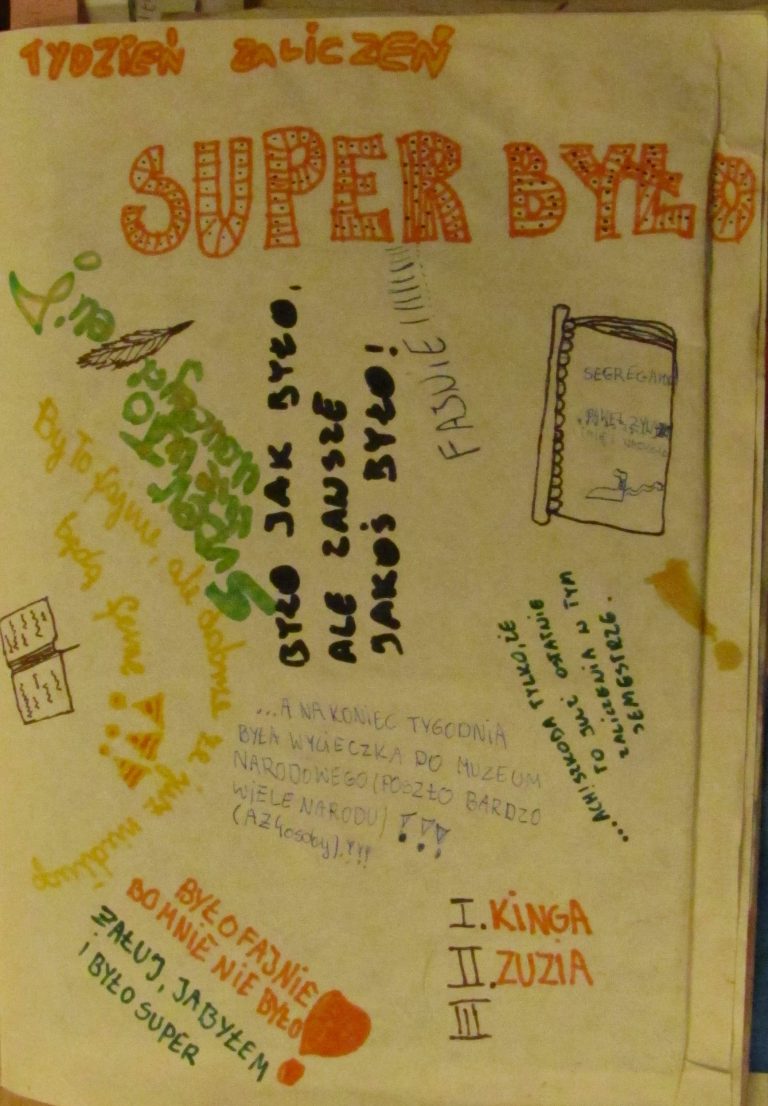 TYDZIEŃ ZALICZEŃ
SUPER BYŁO
BYŁO JAK BYŁO,
ALE ZAWSZE
JAKOŚ BYŁO!
FAJNIE !!!!!!!!
SEGREGATOR
PAWEŁ
IMIĘ I
Super
Było fajnie, ale dobrze że już niedługo
będą ferie !!!
...ACH! SZKODA TYLKO, ŻE
TO JUŻ OSTATNIE
ZALICZENIA W TYM
SEMESTRZE.
...A NA KONIEC TYGODNIA
BYŁA WYCIECZKA DO MUZEUM
NARODOWEGO (POSZŁO BARDZO
WIELE NARODU) !!!
(AŻ 4 osoby).!!!
BYŁO FAJNIE
BO MNIE NIE BYŁO!
ŻAŁUJ, JA BYŁEM
I BYŁO SUPER
I. KINGA
II. ZUZIA
III